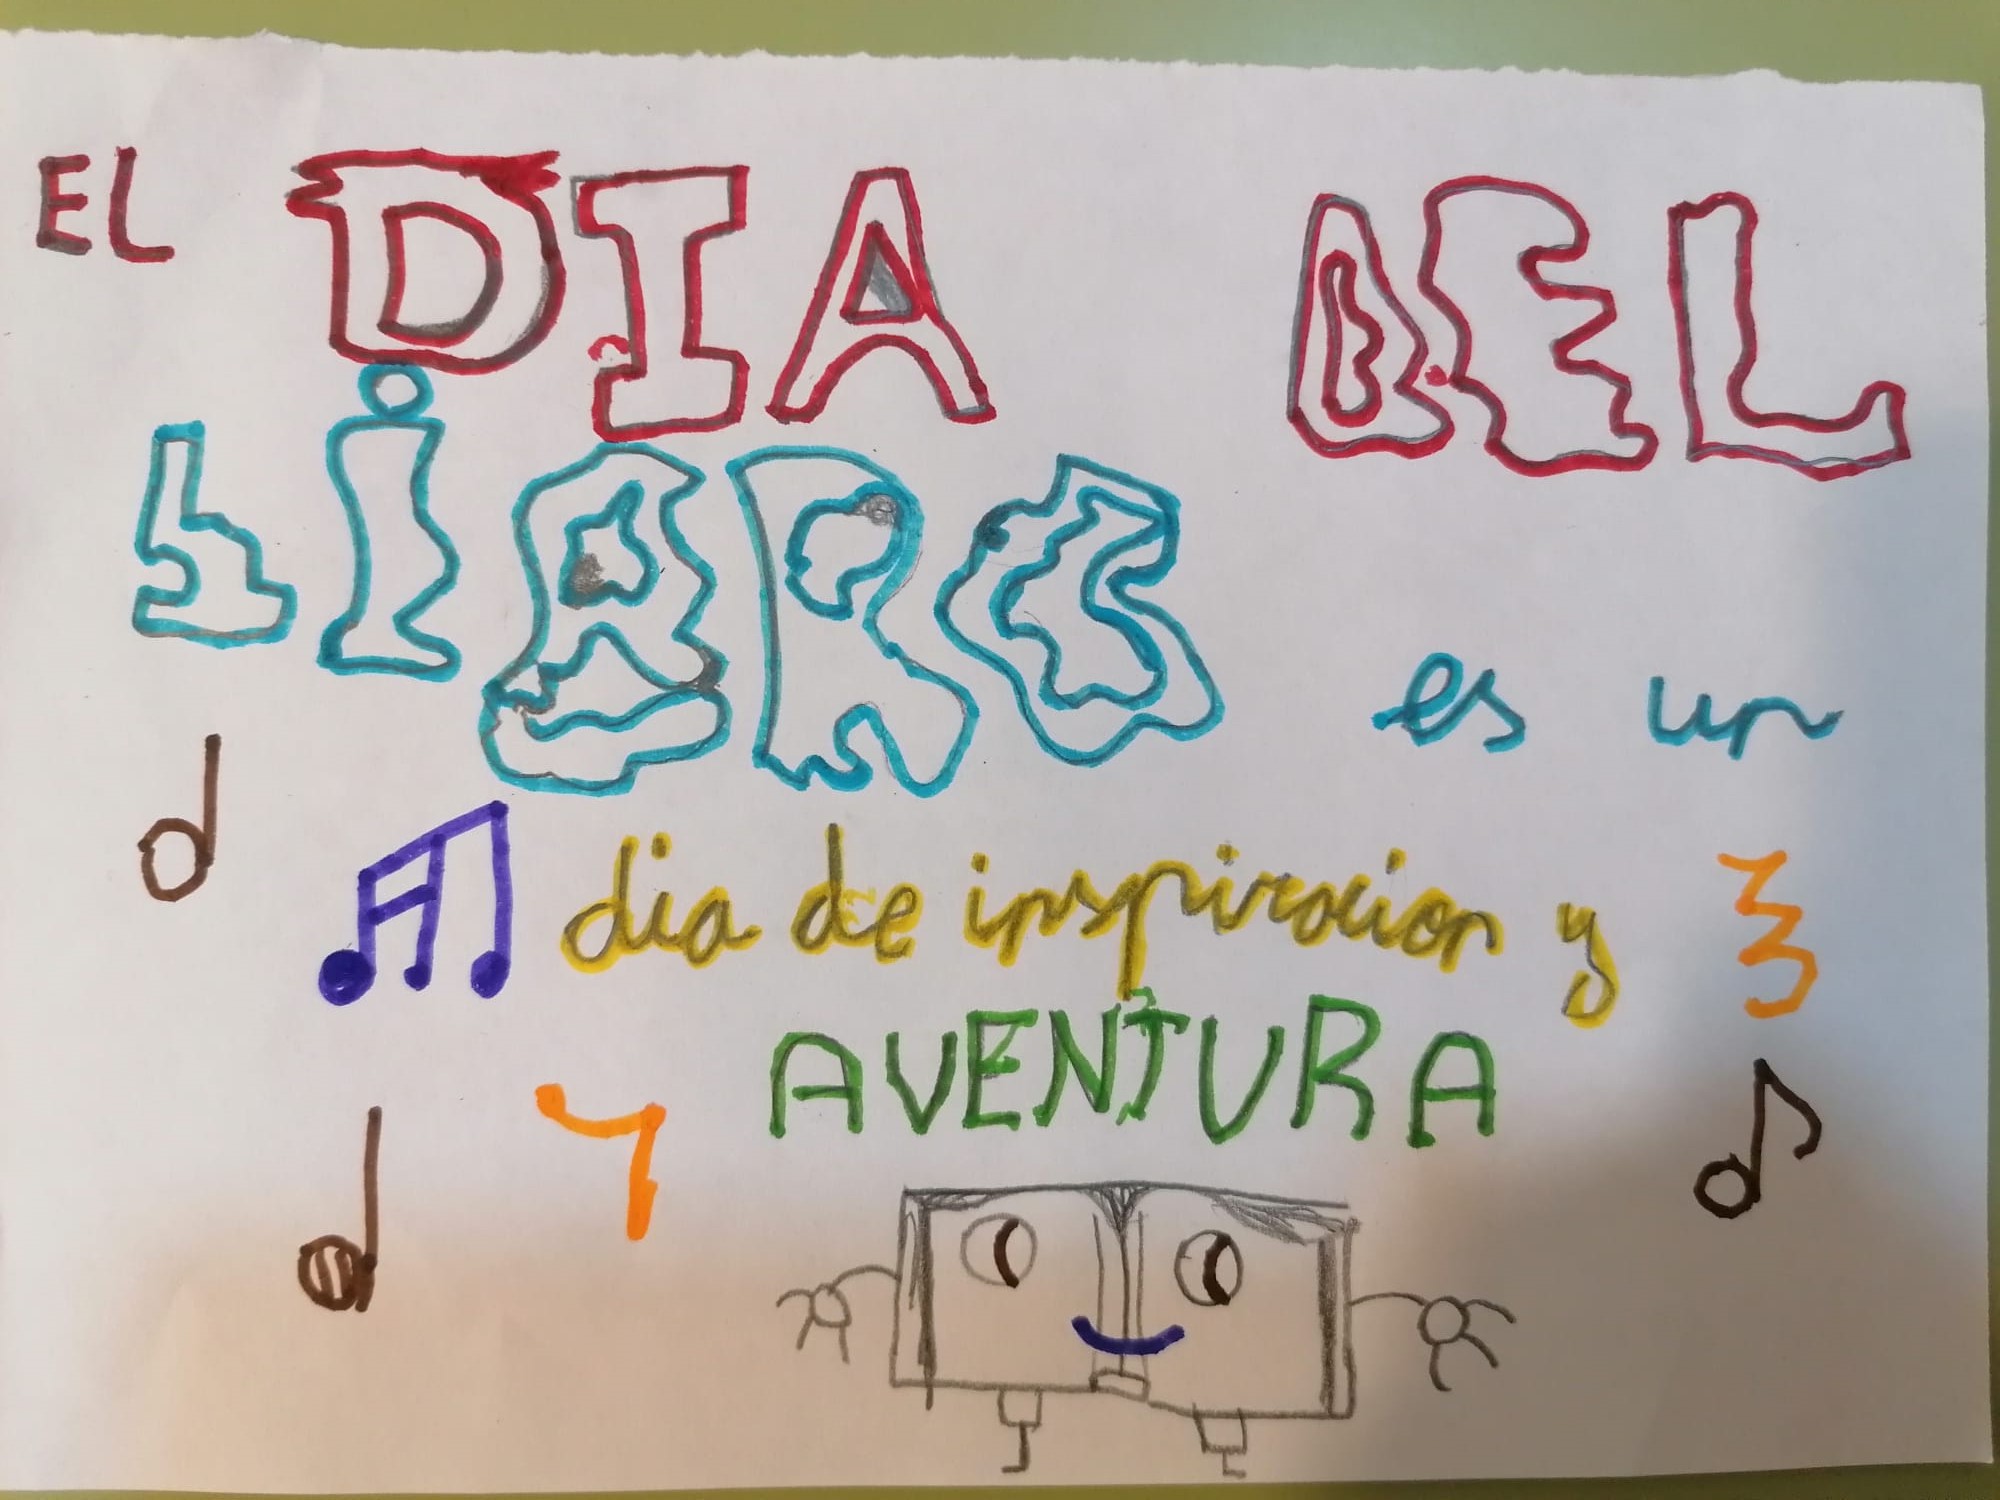 EL DIA DEL
LiBRO es un
dia de inspiracion y
AVENTURA